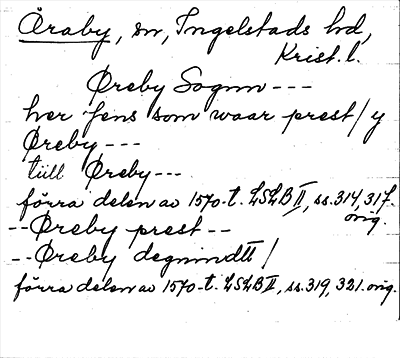 Åraby, sn, Ingelstads hd,
Krist. l.
Øreby Sognn ---
her Jens som waar prest / y
Øreby ---
tiill Øreby ---
förra delen av 1570-t. LSLB II, ss. 314, 317.
orig.
-- Øreby prest --
-- Øreby degnindtt /
förra delen av 1570-t. LSLB II, ss. 319, 321. orig.